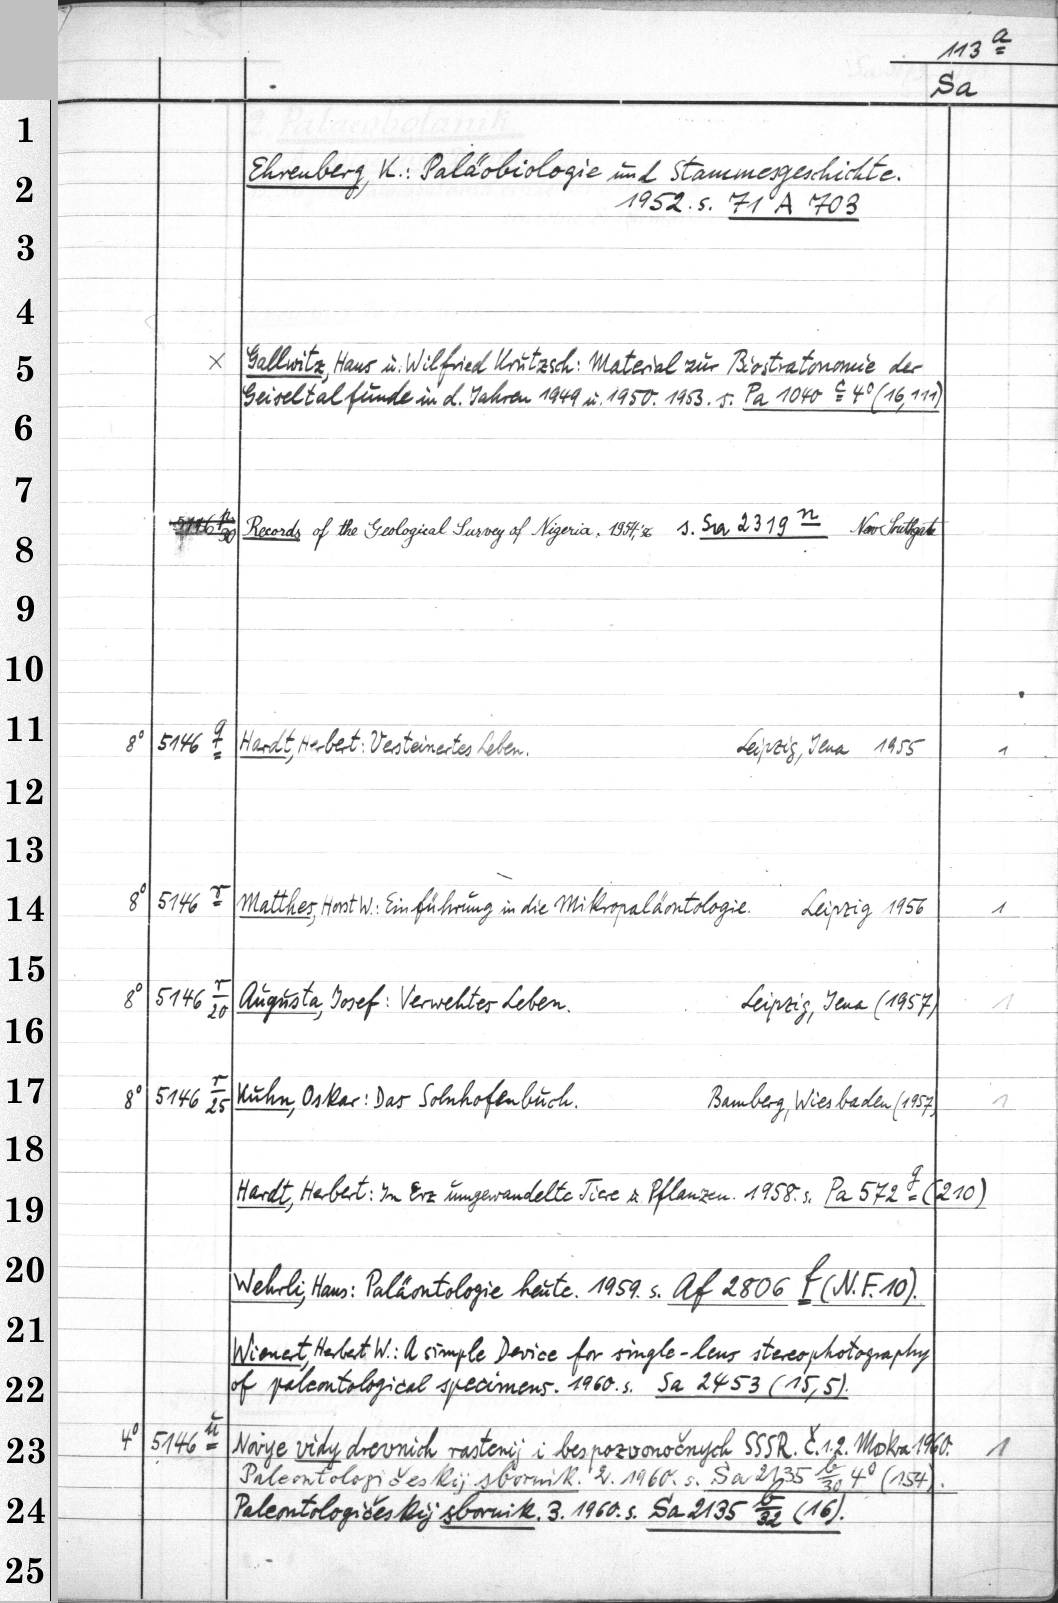 113 a
Sa
1
2
3
4
5
6
7
8
9
10
11
12
13
14
15
16
17
18
19
20
21
22
23
24
25
Ehrenberg, K.: Paläobiologie und Stammesgeschichte.
1952. s. 71 A 703
× Gallwitz, Hans u. Wilfried Krutzsch: Material zur Biostratonomie der
Geiseltalfunde in d. Jahren 1949 u. 1950. 1953. s. Pa 1040 c 4° (16,111)
5146 n/30 Records of the Geological Survey of Nigeria. 1954; s. Sa 2319 n
8° 5146 q Hardt, Herbert: Versteinertes Leben. Leipzig, Jena 1955 1
8° 5146 r Matthes, Horst W.: Einführung in die Mikropaläontologie. Leipzig 1956 1
8° 5146 r/20 Augusta, Josef: Verwehtes Leben. Leipzig, Jena (1957) 1
8° 5146 r/25 Kuhn, Oskar: Das Solnhofenbuch. Bamberg, Wiesbaden (1957) 1
Hardt, Herbert: In Erz umgewandelte Tiere u. Pflanzen. 1958. s. Pa 572 g (210)
Wehrli, Hans: Paläontologie heute. 1959. s. Af 2806 f (N.F. 10).
Wienert, Herbert W.: A simple Device for single-lens stereophotography
of paleontological specimens. 1960. s. Sa 2453 (15,5).
4° 5146 u Novye vidy drevnich rastenij i bespozvonočnych SSSR. Č. 1.2. Mokva 1960. 1
Paleontologičeskij sbornik. 2. 1960. s. Sa 2135 b/30 4° (154).
Paleontologičeskij sbornik. 3. 1960. s. Sa 2135 b/32 (16).